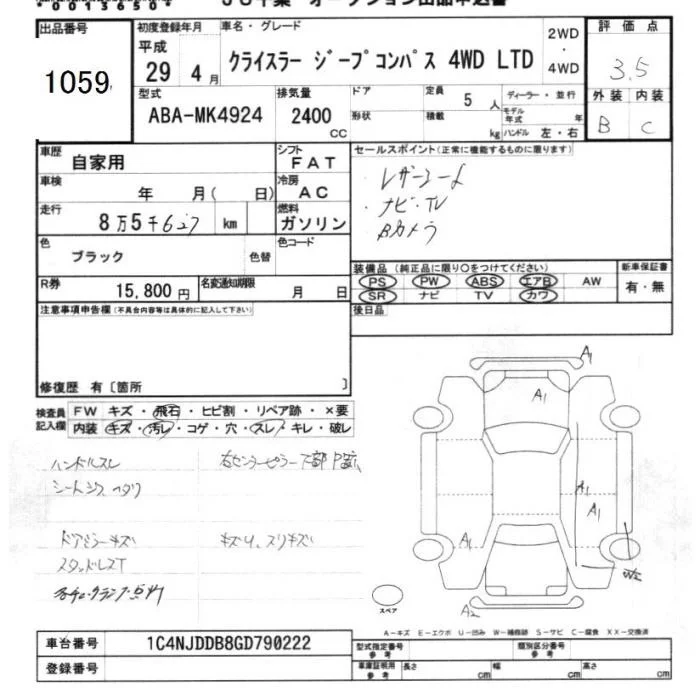 00136504
JU千葉 オークション出品申込書
出品番号 初度登録年月 車名・グレード 2WD・4WD 評価点
1059 平成29年4月 クライスラー ジープコンパス 4WD LTD 3.5
外装 内装
B C
型式 排気量 ドア 定員 5人 ディーラー・並行
ABA-MK4924 2400CC 形状 積載 kg モデル年式 年
ハンドル 左・右
車歴 自家用 シフト FAT セールスポイント(正常に機能するものに限ります)
車検 年 月( 日) 冷房 AC レザーシート
走行 8万5千627km 燃料 ガソリン ナビ・TV
Bカメラ
色 ブラック 色替 色コード
装備品(純正品に限り〇をつけてください) 新車保証書
R券 15,800円 名変通知期限 月 日 PS PW ABS エアB AW 有・無
SR ナビ TV カワ
注意事項申告欄(不具合内容等は具体的に記入して下さい) 後日品
修復歴 有〔箇所 〕
検査員記入欄 FW キズ・飛石・ヒビ割・リペア跡・×要
内装 キズ・汚レ・コゲ・穴・スレ・キレ・破レ
A1
A1
A1
A1
A1
A2
ハンドルスレ 右センターピラー下部
ドアミラーキズ キズ小、スリキズ
スタッドレスT
スペア
A-キズ E-エクボ U-凹み W-補修跡 S-サビ C-腐食 XX-交換済
車台番号 1C4NJDDB8GD790222 型式指定番号 参考 類別区分番号 参考
登録番号 車庫証明用 参考 長さ cm 幅 cm 高さ cm